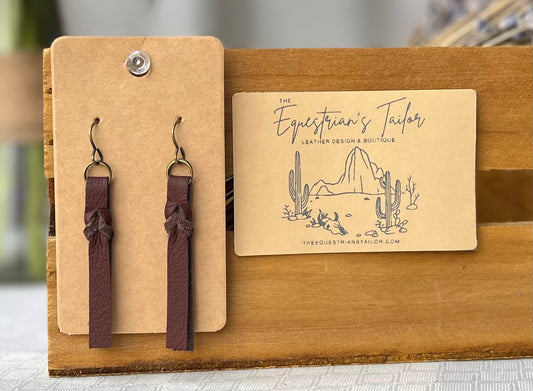 THE
Equestrian's Tailor
LEATHER DESIGN & BOUTIQUE
THEEQUESTRIANSTAILOR.COM